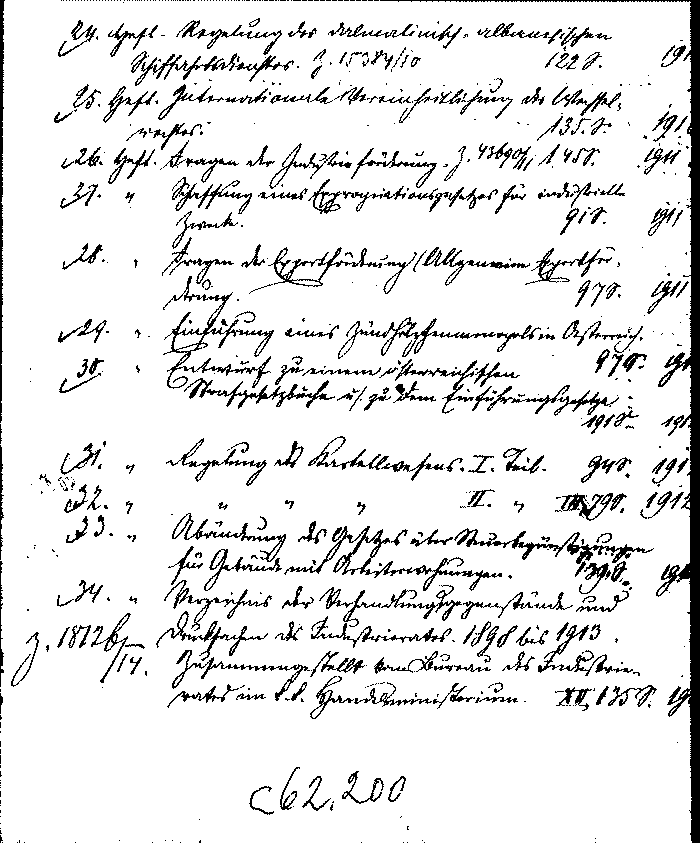 24. Heft. Regelung des dalmatinisch-albanesischen
Schiffahrtsdienstes. Z. 15384/10 122 S. 191
25. Heft. Internationale Vereinheitlichung des Wechsel-
rechtes. 135. S. 191
26. Heft. Fragen der Industrieförderung. Z. 43690/11 145 S. 1911
27. " Schaffung eines Expropriationsgesetzes für industrielle
Zwecke. 91 S. 1911
28. " Fragen der Exportförderung (Allgemeine Exportför-
derung. 97 S. 1911
29. " Einführung eines Zündhölzchenmonopols in Österreich.
97 S. 19
30. " Entwurf zu einem österreichischen
Strafgesetzbuche u. zu dem Einführungsgesetze.
191 S. 191
31. " Regelung des Kartellwesens. I. Teil. 94 S. 191
32. " " " " II. " 79 S. 1912
33. " Abänderung des Gesetzes über Steuerbegünstigungen
für Gebäude mit Arbeiterwohnungen. 139 S. 19
34. " Verzeichnis der Verhandlungsgegenstände und
Z. 18126/14. Drucksachen des Industrierates. 1898 bis 1913.
Zusammengestellt vom Bureau des Industrie-
rates im k. k. Handelsministerium. XV, 135 S. 19
C 62.200